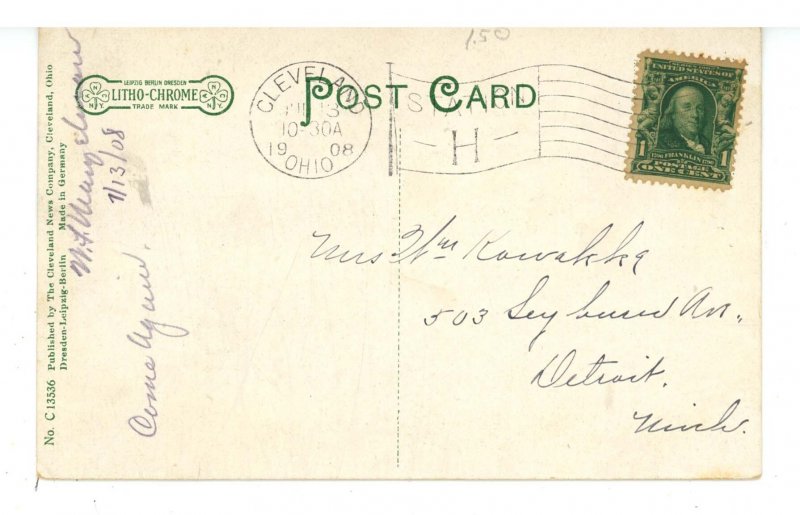 1.50
LEIPZIG BERLIN DRESDEN
LITHO-CHROME
TRADE MARK
POST CARD
CLEVELAND
JUL 13
10-30A
1908
OHIO
STATION
H
UNITED STATES OF
AMERICA
1790 FRANKLIN 1790
POSTAGE
1 ONE CENT 1
Mrs Wm Kowalkka
503 Seyburn Av.,
Detroit.
Mich.
Come Again.
7/13/08
No. C 13536 Published by The Cleveland News Company, Cleveland, Ohio
Dresden-Leipzig-Berlin Made in Germany